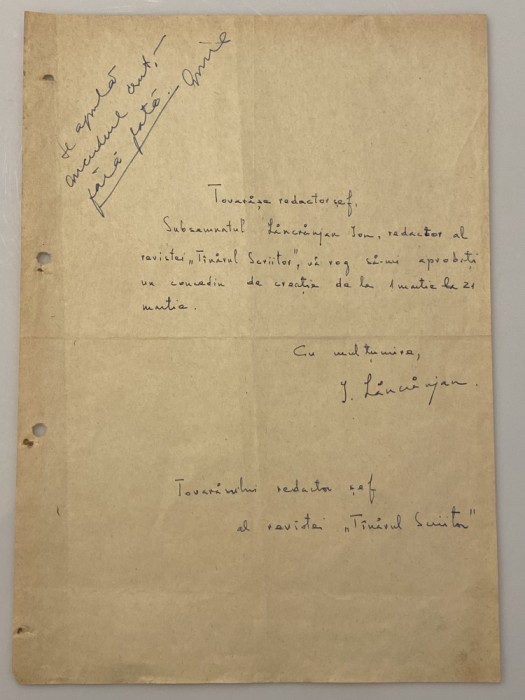 se aprobă
concediul cont.
fără plată.
Tovarăşe redactor şef,
Subsemnatul Lăncrănjan Ion, redactor al
revistei „Tînărul Scriitor", vă rog să-mi aprobaţi
un concediu de creaţie de la 1 martie la 21
martie.
Cu mulţumire,
I. Lăncrănjan.
Tovarăşului redactor şef
al revistei „Tînărul Scriitor"